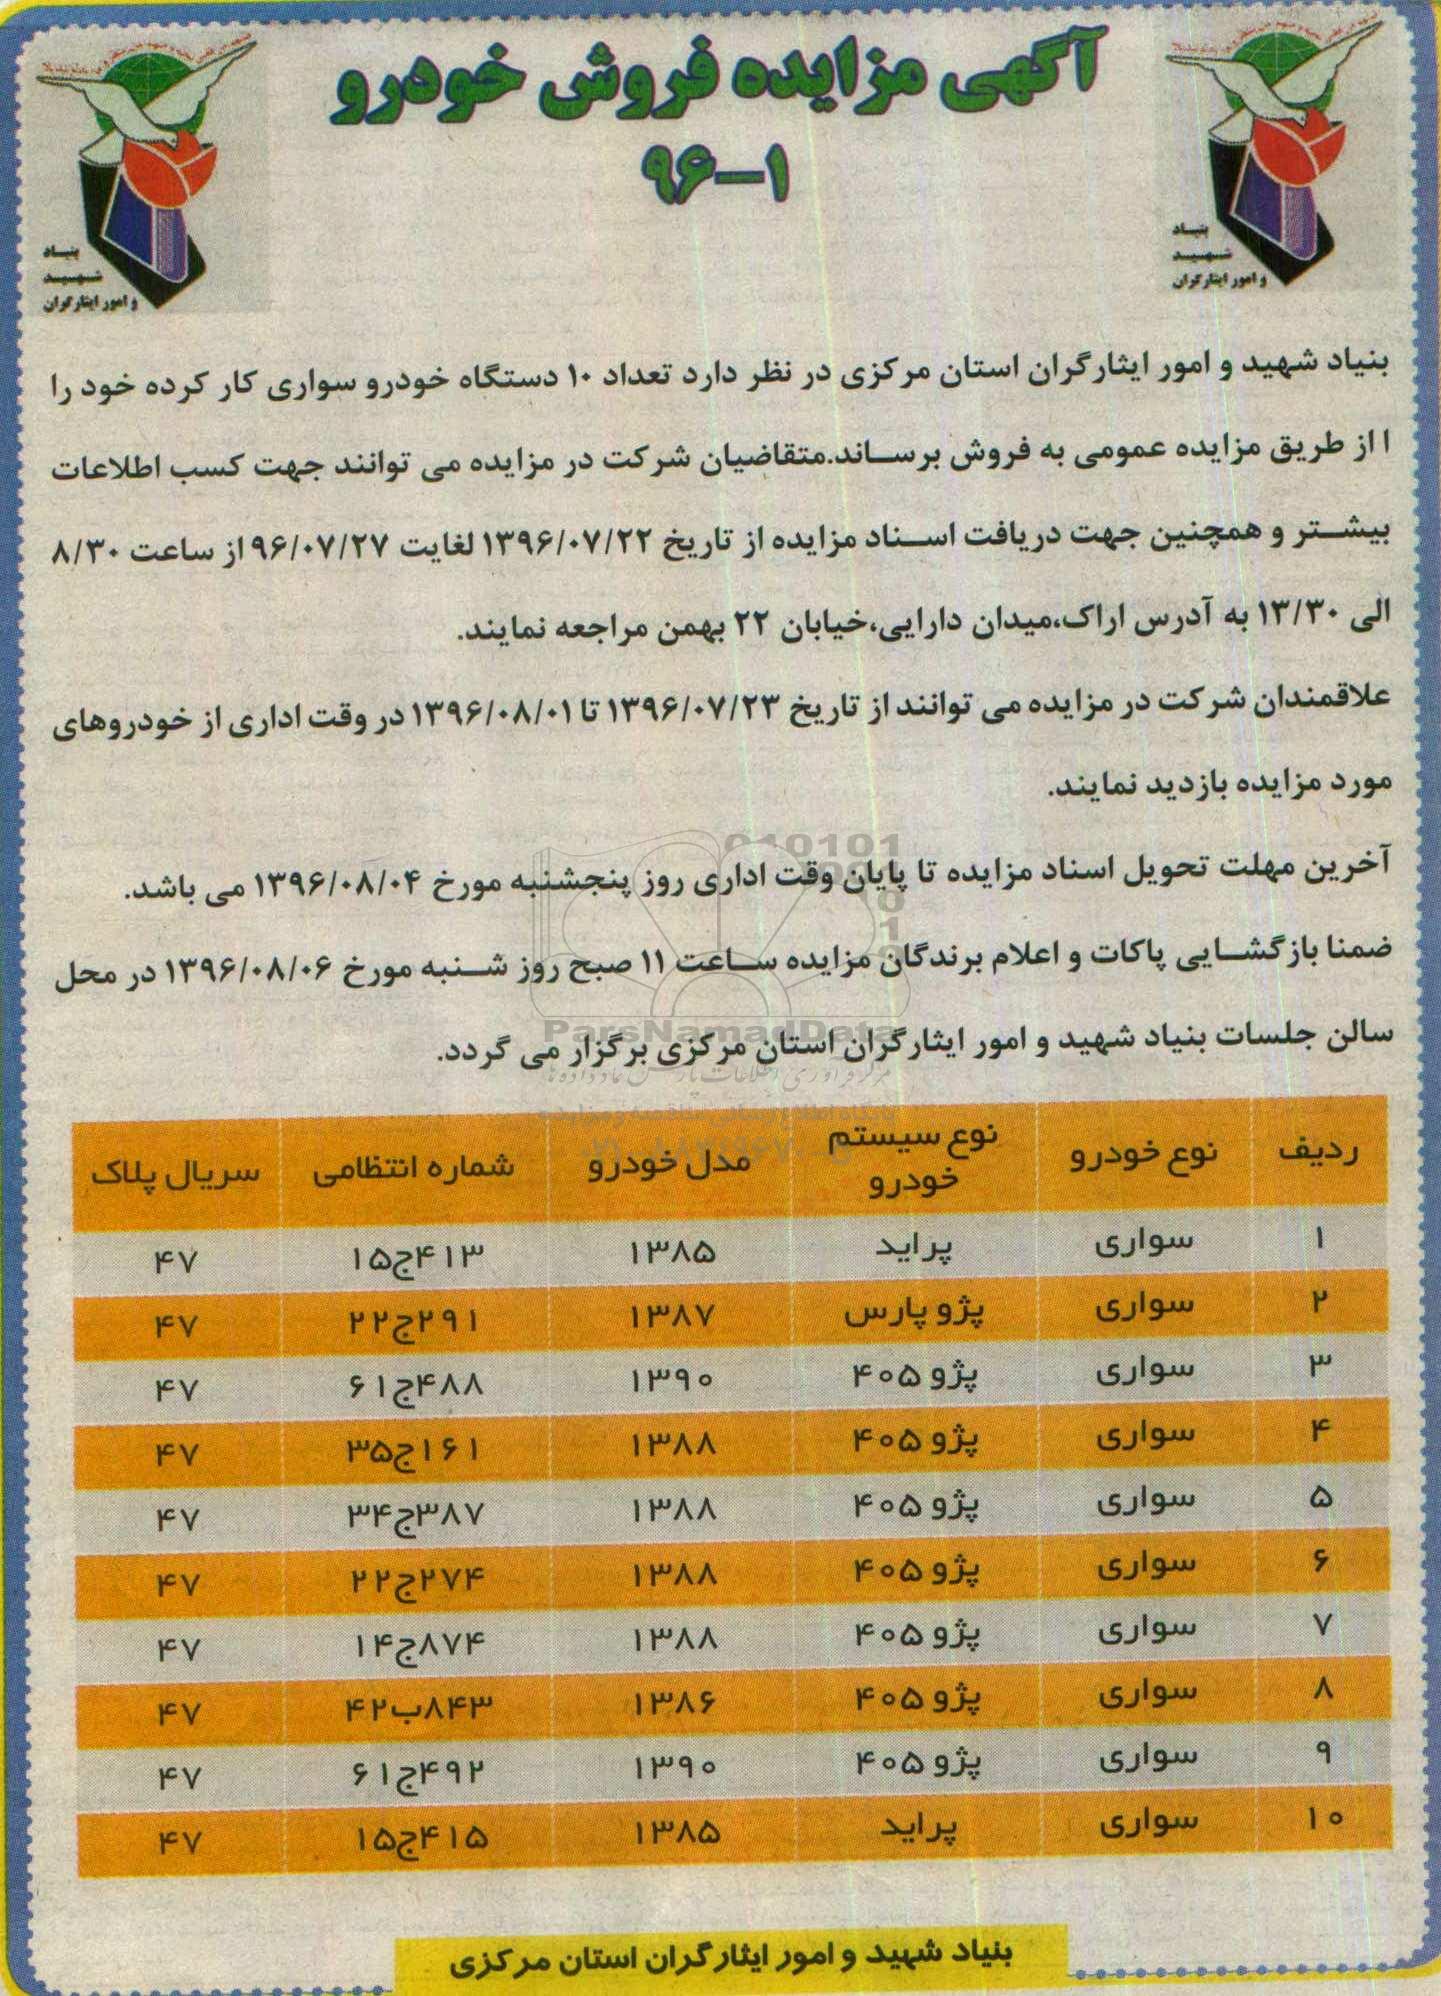 آگهی مزایده فروش خودرو
۹۶-۱
بنیاد
شهید
و امور ایثارگران
بنیاد
شهید
و امور ایثارگران
بنیاد شهید و امور ایثارگران استان مرکزی در نظر دارد تعداد ۱۰ دستگاه خودرو سواری کار کرده خود را
ا از طریق مزایده عمومی به فروش برساند.متقاضیان شرکت در مزایده می توانند جهت کسب اطلاعات
بیشتر و همچنین جهت دریافت اسناد مزایده از تاریخ ۱۳۹۶/۰۷/۲۲ لغایت ۹۶/۰۷/۲۷ از ساعت ۸/۳۰
الی ۱۳/۳۰ به آدرس اراک،میدان دارایی،خیابان ۲۲ بهمن مراجعه نمایند.
علاقمندان شرکت در مزایده می توانند از تاریخ ۱۳۹۶/۰۷/۲۳ تا ۱۳۹۶/۰۸/۰۱ در وقت اداری از خودروهای
مورد مزایده بازدید نمایند.
آخرین مهلت تحویل اسناد مزایده تا پایان وقت اداری روز پنجشنبه مورخ ۱۳۹۶/۰۸/۰۴ می باشد.
ضمنا بازگشایی پاکات و اعلام برندگان مزایده ساعت ۱۱ صبح روز شنبه مورخ ۱۳۹۶/۰۸/۰۶ در محل
سالن جلسات بنیاد شهید و امور ایثارگران استان مرکزی برگزار می گردد.
ParsNamadData
ردیف نوع خودرو نوع سیستم خودرو مدل خودرو شماره انتظامی سریال پلاک
۱ سواری پراید ۱۳۸۵ ۴۱۳ج۱۵ ۴۷
۲ سواری پژو پارس ۱۳۸۷ ۲۹۱ج۲۲ ۴۷
۳ سواری پژو ۴۰۵ ۱۳۹۰ ۴۸۸ج۶۱ ۴۷
۴ سواری پژو ۴۰۵ ۱۳۸۸ ۱۶۱ج۳۵ ۴۷
۵ سواری پژو ۴۰۵ ۱۳۸۸ ۳۸۷ج۳۴ ۴۷
۶ سواری پژو ۴۰۵ ۱۳۸۸ ۲۷۴ج۲۲ ۴۷
۷ سواری پژو ۴۰۵ ۱۳۸۸ ۸۷۴ج۱۴ ۴۷
۸ سواری پژو ۴۰۵ ۱۳۸۶ ۸۴۳ب۴۲ ۴۷
۹ سواری پژو ۴۰۵ ۱۳۹۰ ۴۹۲ج۶۱ ۴۷
۱۰ سواری پراید ۱۳۸۵ ۴۱۵ج۱۵ ۴۷
بنیاد شهید و امور ایثارگران استان مرکزی